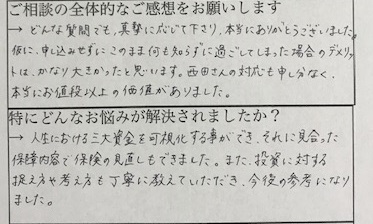 ご相談の全体的なご感想をお願いします
→ どんな質問でも、真摯に応じて下さり、本当にありがとうございました。
仮に、申し込みせずにこのまま何も知らずに過ごしてしまった場合のデメリッ
トは、かなり大きかったと思います。西田さんの対応も申し分なく、
本当にお値段以上の価値がありました。
特にどんなお悩みが解決されましたか？
→ 人生における三大資金を可視化する事ができ、それに見合った
保障内容で保険の見直しもできました。また、投資に対する
捉え方や考え方も丁寧に教えていただき、今後の参考になり
ました。